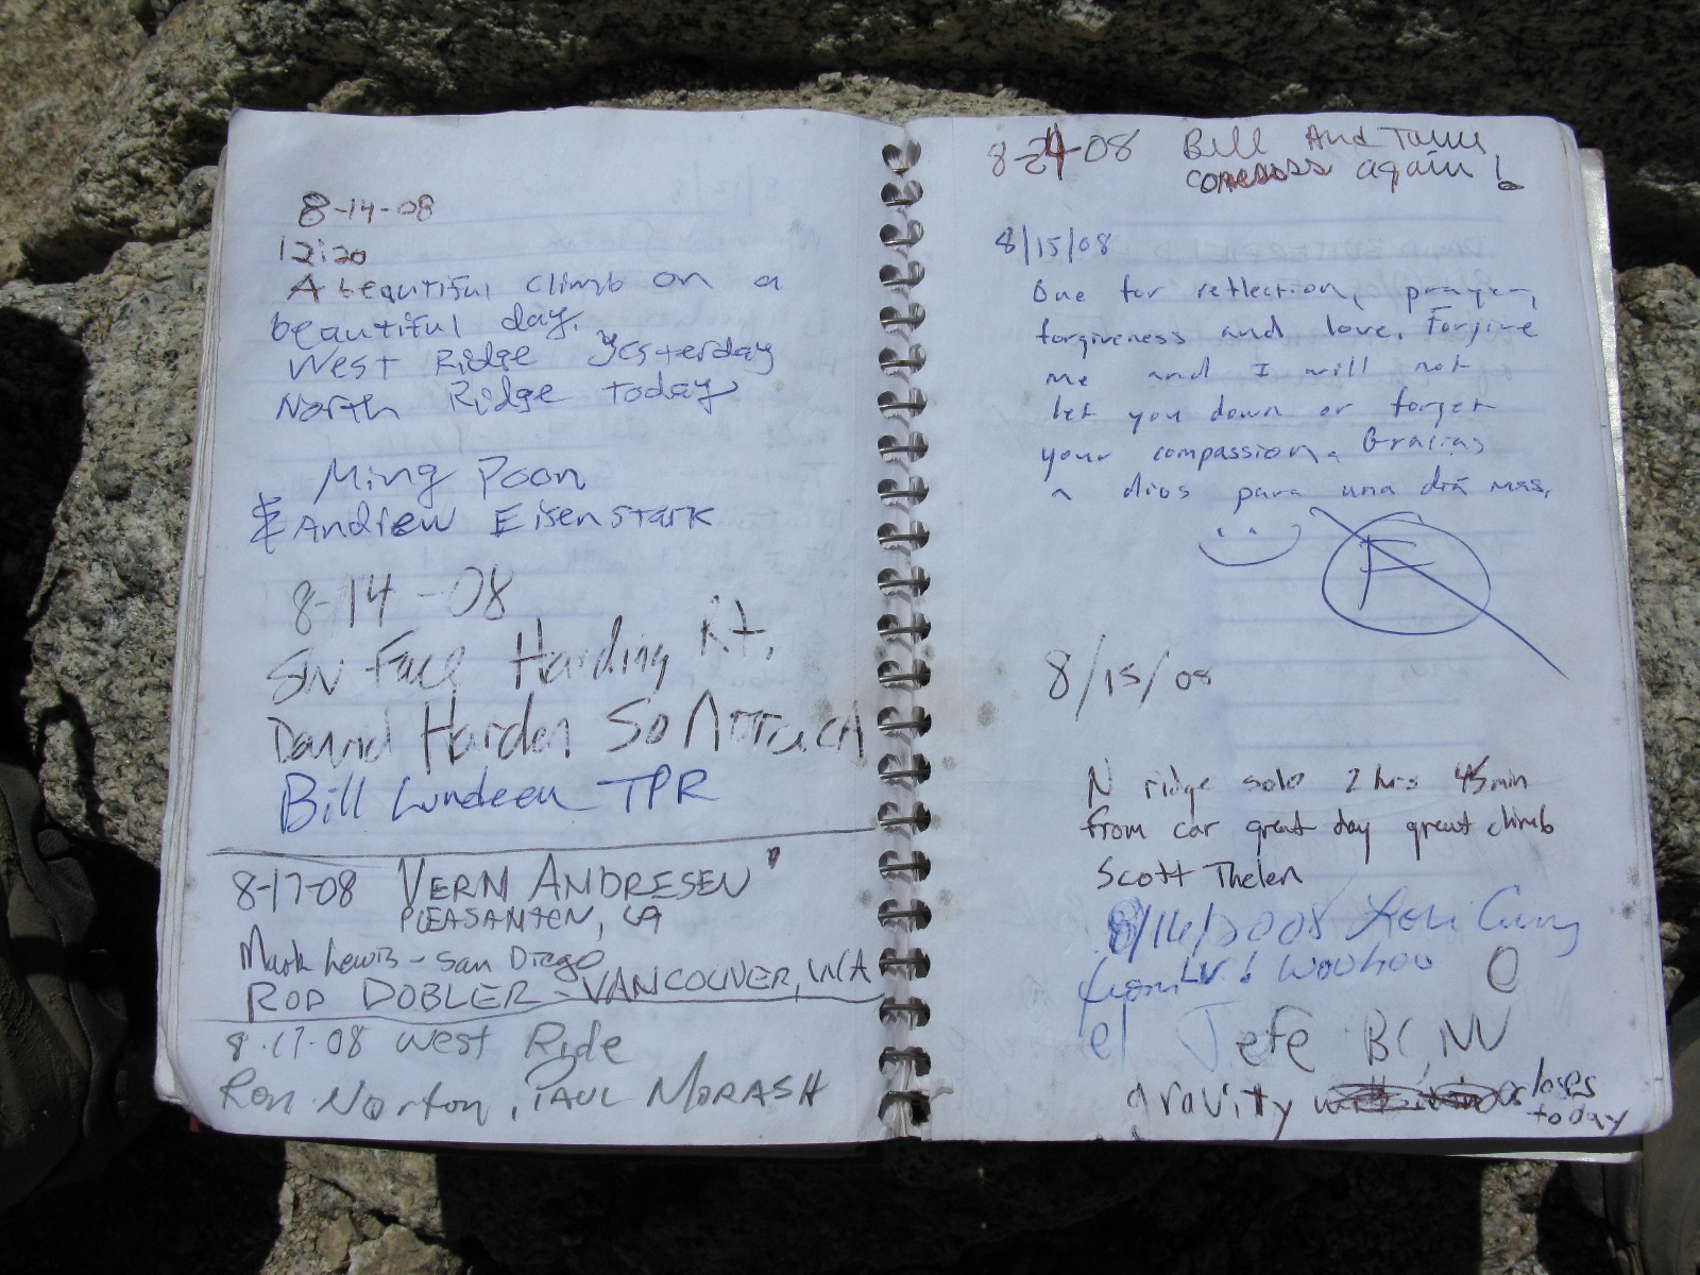 8-14-08
12:20
A beautiful climb on a
beautiful day.
West Ridge Yesterday
North Ridge today
Ming Poon
& Andrew Eisenstark
8-14-08
SW Face Harding Rt.
David Harden So
Bill Lundeen TPR
8-17-08 VERN ANDRESEN
PLEASANTON, CA
Mark Lewis - San Diego
ROD DOBLER - VANCOUVER, WA
8-17-08 West Ride
Ron Norton, PAUL MORASH
8-24-08 Bill And
again!
8/15/08
One for reflection, prayer,
forgiveness and love. Forgive
me and I will not
let you down or forget
your compassion. Gracias
a dios para una día mas.
F
8/15/08
N ridge solo 2 hrs 45min
from car great day great climb
Scott Thelen
8/16/2008
from LV! Woohoo
el Jefe BC, NV
gravity loses
today